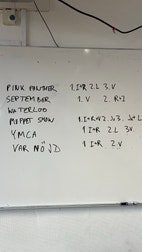 PINK PANTHER 1. I+R 2. L 3. V
SEPTEMBER 1. V 2. R+I
WATERLOO
MUPPET SHOW
YMCA 1 I+R 2. L 3V.
VAR NÖJD 1 I+R 2.V